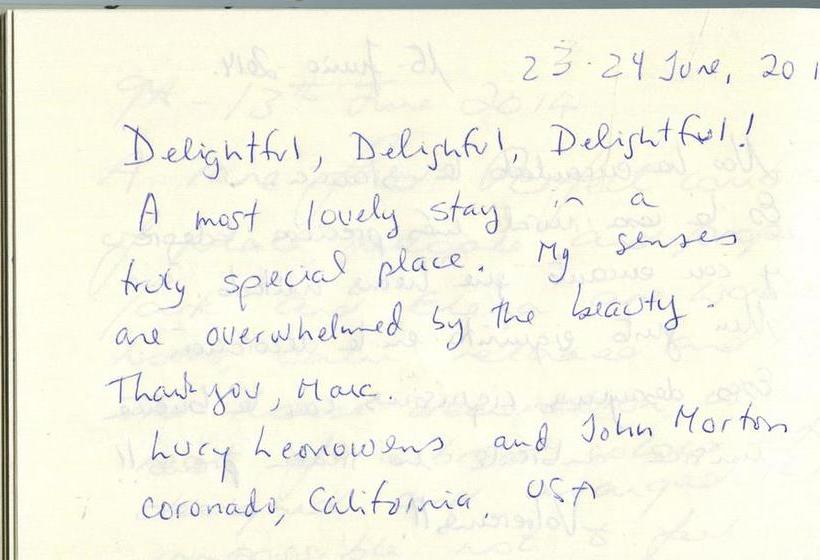 23-24 June, 201
Delightful, Delighful, Delightful!
A most lovely stay in a
truly special place. My senses
are overwhelmed by the beauty.
Thank you, Marc.
Lucy Leonowens and John Morton
coronado, California, USA